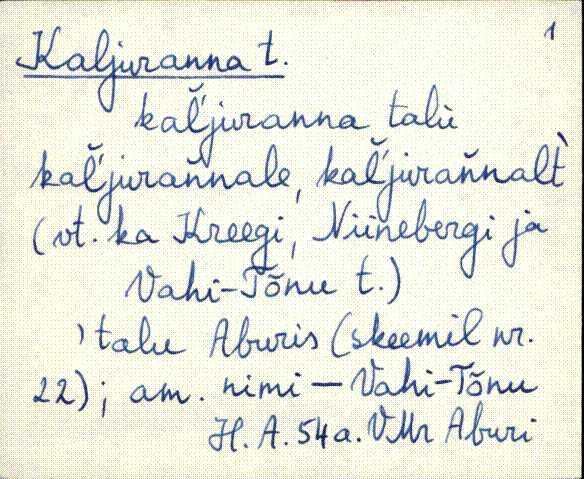 1
Kaljuranna t.
kal̆'juranna talu
kal̆'juran̆nale, kal̆'juran̆nalt̀
(vt. ka Kreegi, Niinebergi ja
Vahi-Tõnu t.)
'talu Aburis (skeemil nr.
22); am. nimi — Vahi-Tõnu
H. A. 54 a. VMr Aburi